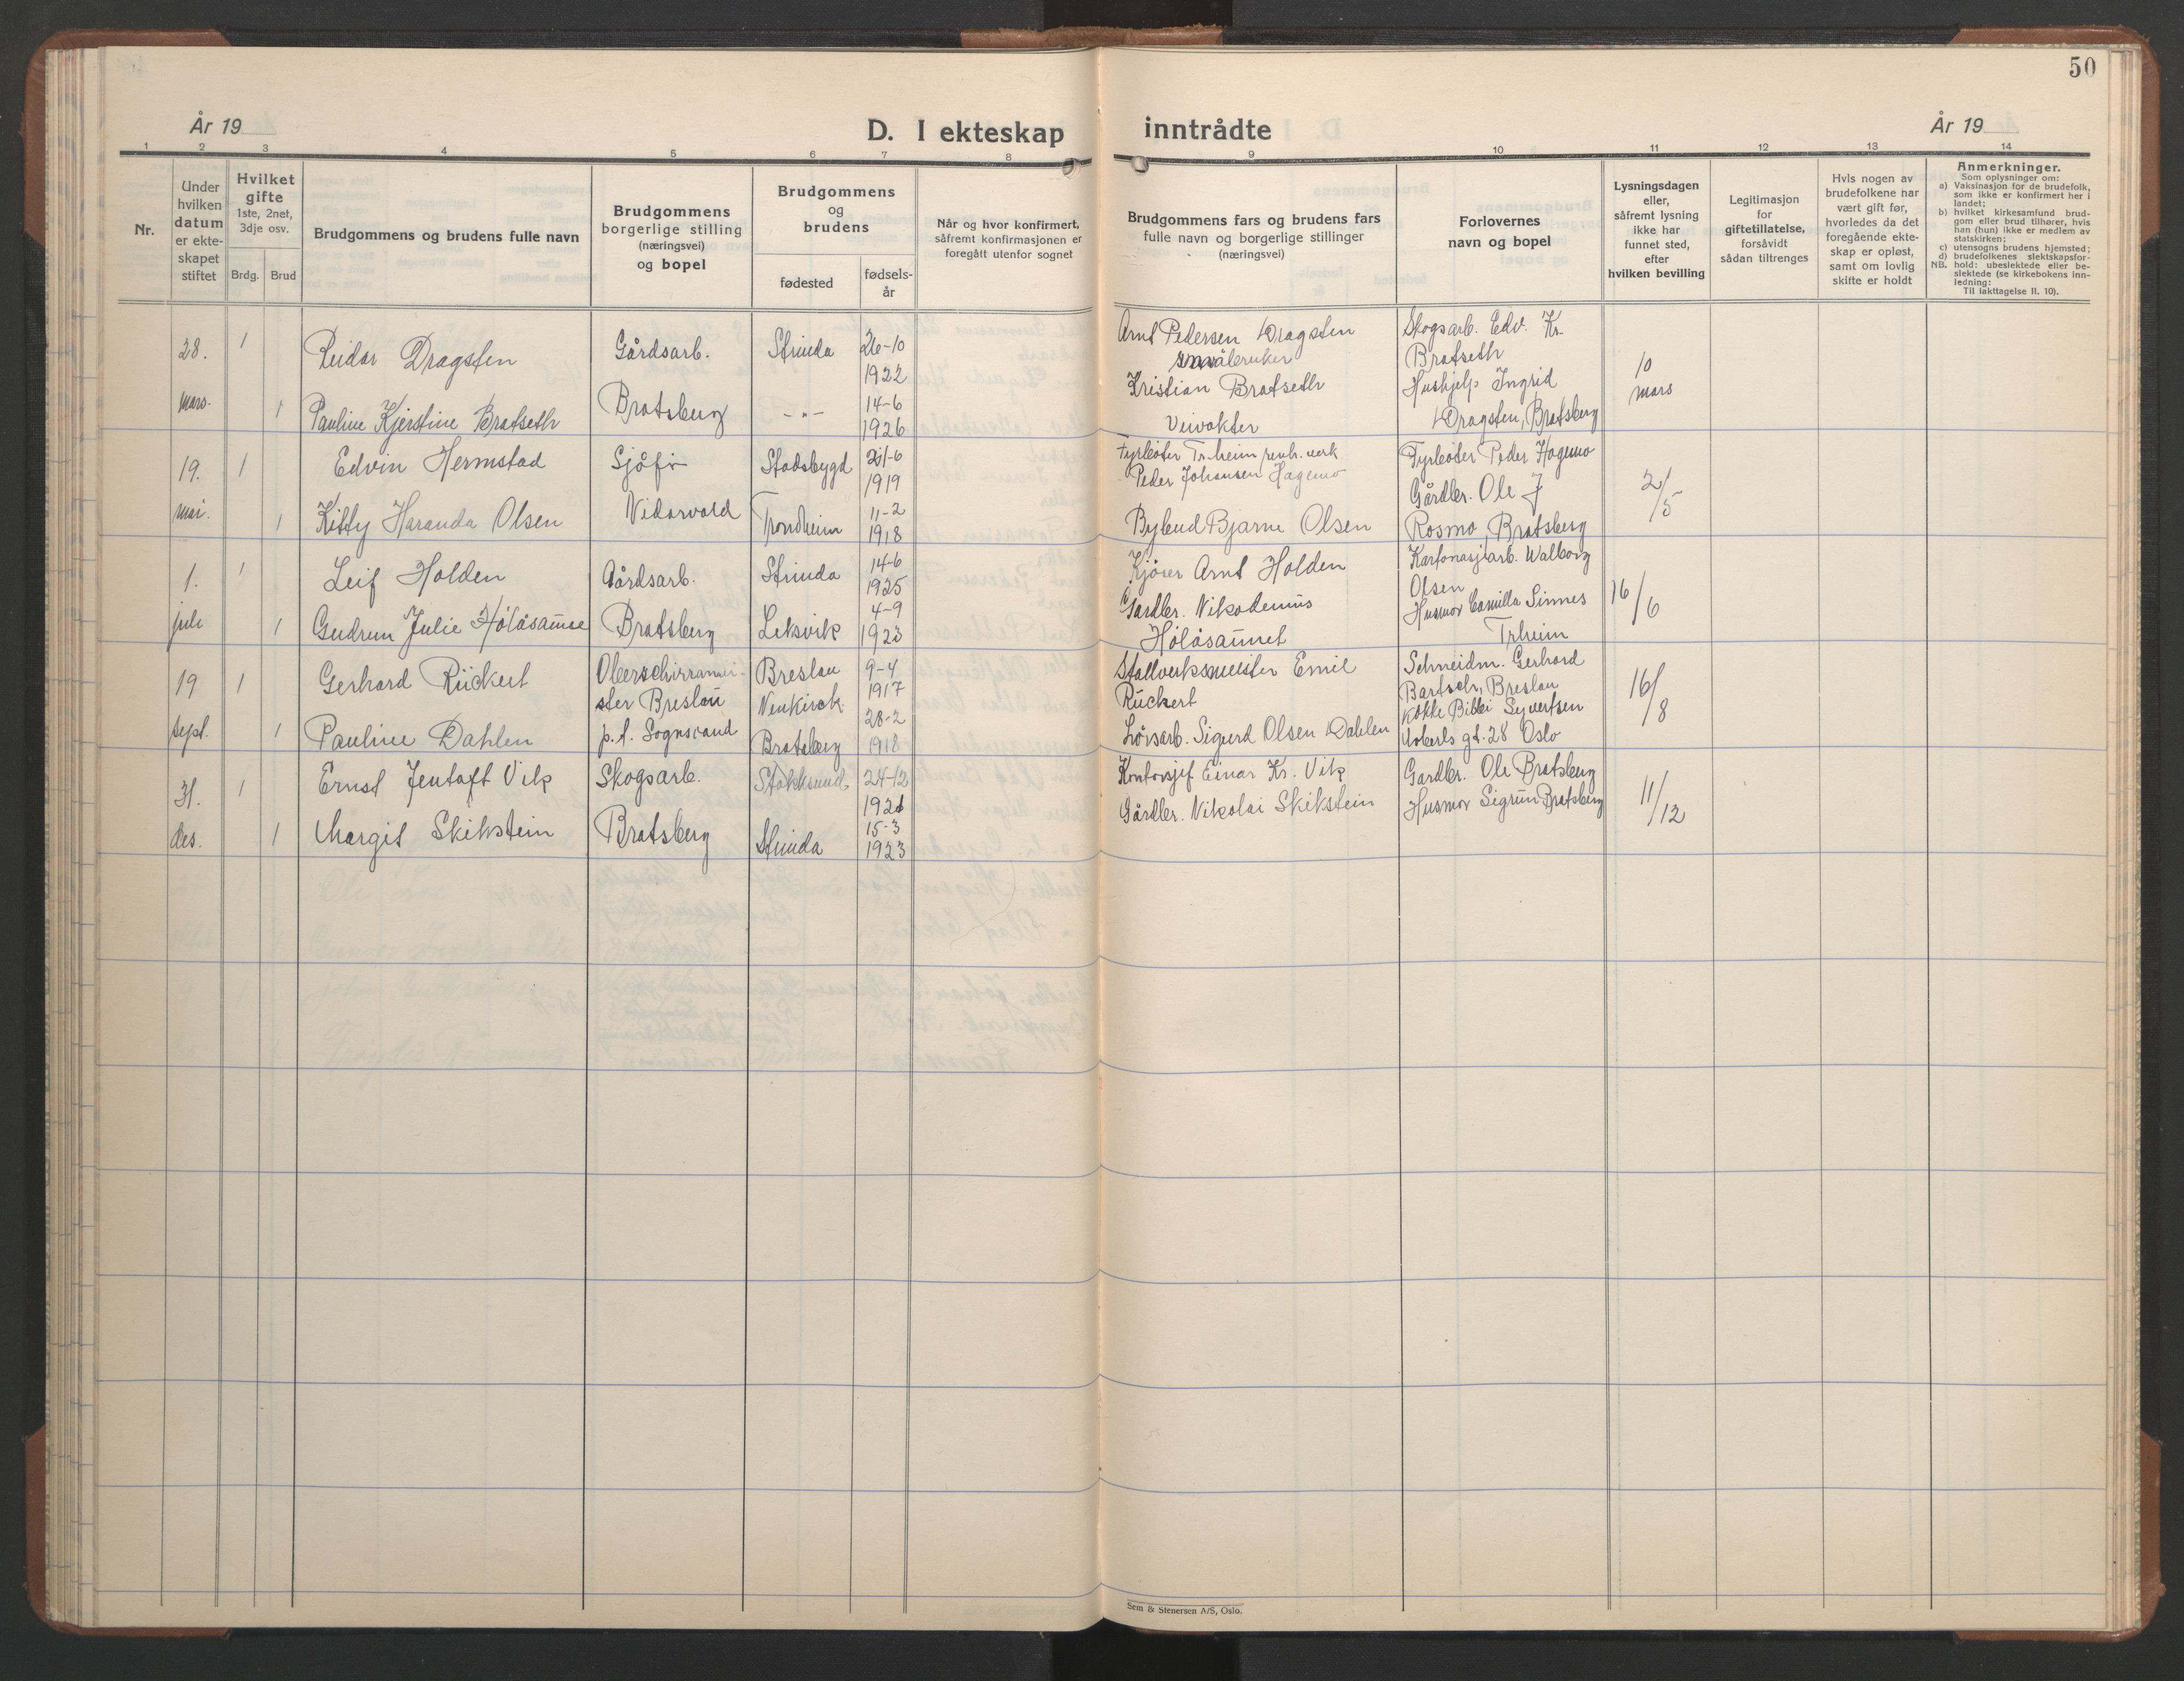 50
År 19
D. I ekteskap inntrådte
År 19
1 2 3 4 5 6 7 8 9 10 11 12 13 14
Nr.
Under
hvilken
datum
er ekte-
skapet
stiftet
Hvilket
gifte
1ste, 2net,
3dje osv.
Brdg. Brud
Brudgommens og brudens fulle navn
Brudgommens
borgerlige stilling
(næringsvei)
og bopel
Brudgommens
og
brudens
fødested
fødsels-
år
Når og hvor konfirmert,
såfremt konfirmasjonen er
foregått utenfor sognet
Brudgommens fars og brudens fars
fulle navn og borgerlige stillinger
(næringsvei)
Forlovernes
navn og bopel
Lysningsdagen
eller,
såfremt lysning
ikke har
funnet sted,
efter
hvilken bevilling
Legitimasjon
for
giftetillatelse,
forsåvidt
sådan tiltrenges
Hvis nogen av
brudefolkene har
vært gift før,
hvorledes da det
foregående ekte-
skap er opløst,
samt om lovlig
skifte er holdt
Anmerkninger.
Som oplysninger om:
a) Vaksinasjon for de brudefolk,
som ikke er konfirmert her i
landet;
b) hvilket kirkesamfund brud-
gom eller brud tilhører, hvis
han (hun) ikke er medlem av
statskirken;
c) utensogns brudens hjemsted;
d) brudefolkenes slektskapsfor-
NB. hold: ubeslektede eller be-
slektede (se kirkebokens inn-
ledning:
Til iakttagelse II. 10).
28. 1 Reidar Dragsten Gårdsarb. Strinda 26-10
1922
mars. 1 Pauline Kjerstine Bratseth Bratsberg -"- 14-6
1926
Arnt Pedersen Dragsten
småbruker
Kristian Bratseth
Veivokter
Skogsarb. Edv. Kr.
Bratseth
Hushjelp Ingrid
Dragsten, Bratsberg
10
mars
19. 1 Edvin Hermstad Sjåfør Stadsbygd 21-6
1919
mai. 1 Kitty Haranda Olsen Nidarvold Trondheim 11-2
1918
Fyrbøter Tr.heim renh. verk
Peder Johansen Hagemo
Bybud Bjarne Olsen
Fyrbøter Peder Hagemo
Gårdbr. Ole J
Rosmo, Bratsberg
2/5
1. 1 Leif Holden Gårdsarb. Strinda 14-6
1925
juli 1 Gudrun Julie Hölåsaunet Bratsberg Leksvik 4-9
1923
Kjører Arnt Holden
Gardbr. Nikodemus
Hölåsaunet
Kartonasjearb. Walborg
Olsen
Husmor Camilla Sinnes
Trheim
16/6
19 1 Gerhard Rückert Oberschirrmei-
ster Breslau
Breslau
Neukirch
9-4
1917
sept. 1 Pauline Dahlen p.t. Sognsvand Bratsberg 28-2
1918
Stallverksmeister Emil
Rückert
Løvsarb. Sigurd Olsen Dahlen
Schneidm. Gerhard
Bartsch, Breslau
Kokke Bibbi Syvertsen
gt. 28 Oslo
16/8
31. 1 Ernst Jentoft Vik Skogsarb. Stokksund 24-12
1921
des. 1 Margit Skikstein Bratsberg Strinda 15-3
1923
Kontorsjef Einar Kr. Vik
Gårdbr. Nikolai Skikstein
Gardbr. Ole Bratsberg
Husmor Sigrun Bratsberg
11/12
Sem & Stenersen A/S, Oslo.